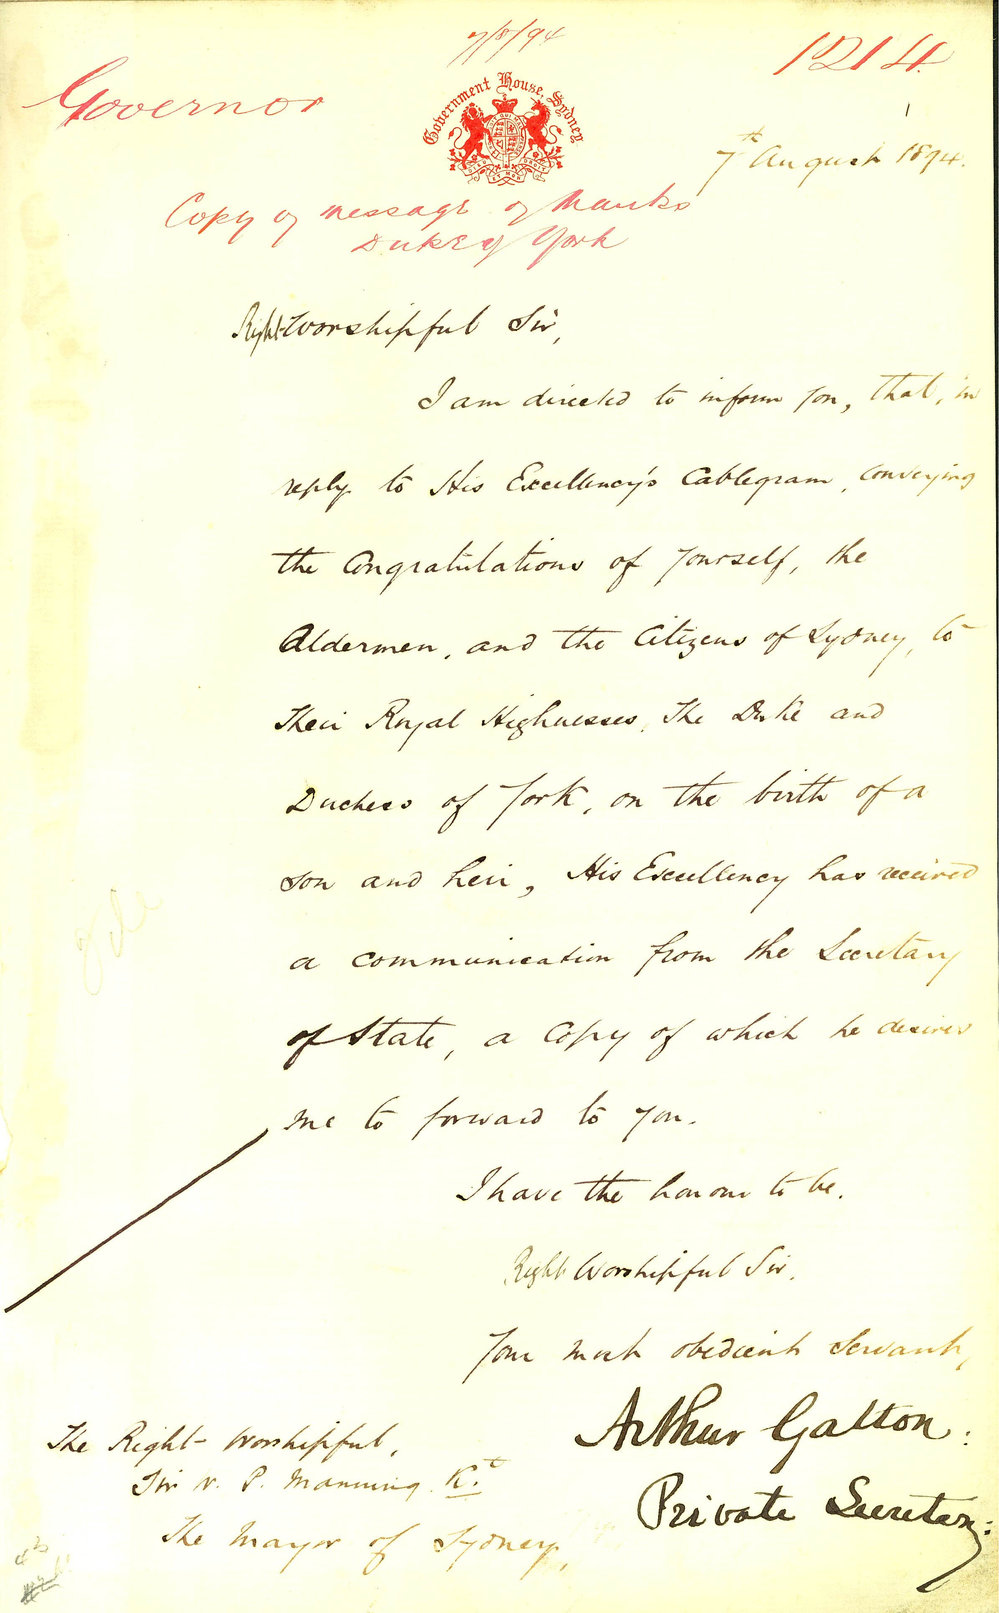 7/8/94
1214
Governor
Government House, Sydney
7th August 1894.
Copy of message of thanks
Duke of York
Right Worshipful Sir,
I am directed to inform you, that, in
reply to His Excellency's Cablegram, conveying
the Congratulations of yourself, the
Aldermen, and the Citizens of Sydney, to
Their Royal Highnesses, The Duke and
Duchess of York, on the birth of a
son and heir, His Excellency has received
a communication from the Secretary
of State, a copy of which he desires
me to forward to you.
I have the honour to be.
Right Worshipful Sir.
Your most obedient Servant,
Arthur Galton:
Private Secretary:
The Right-Worshipful,
Sir W. P. Manning. Kt
The Mayor of Sydney,